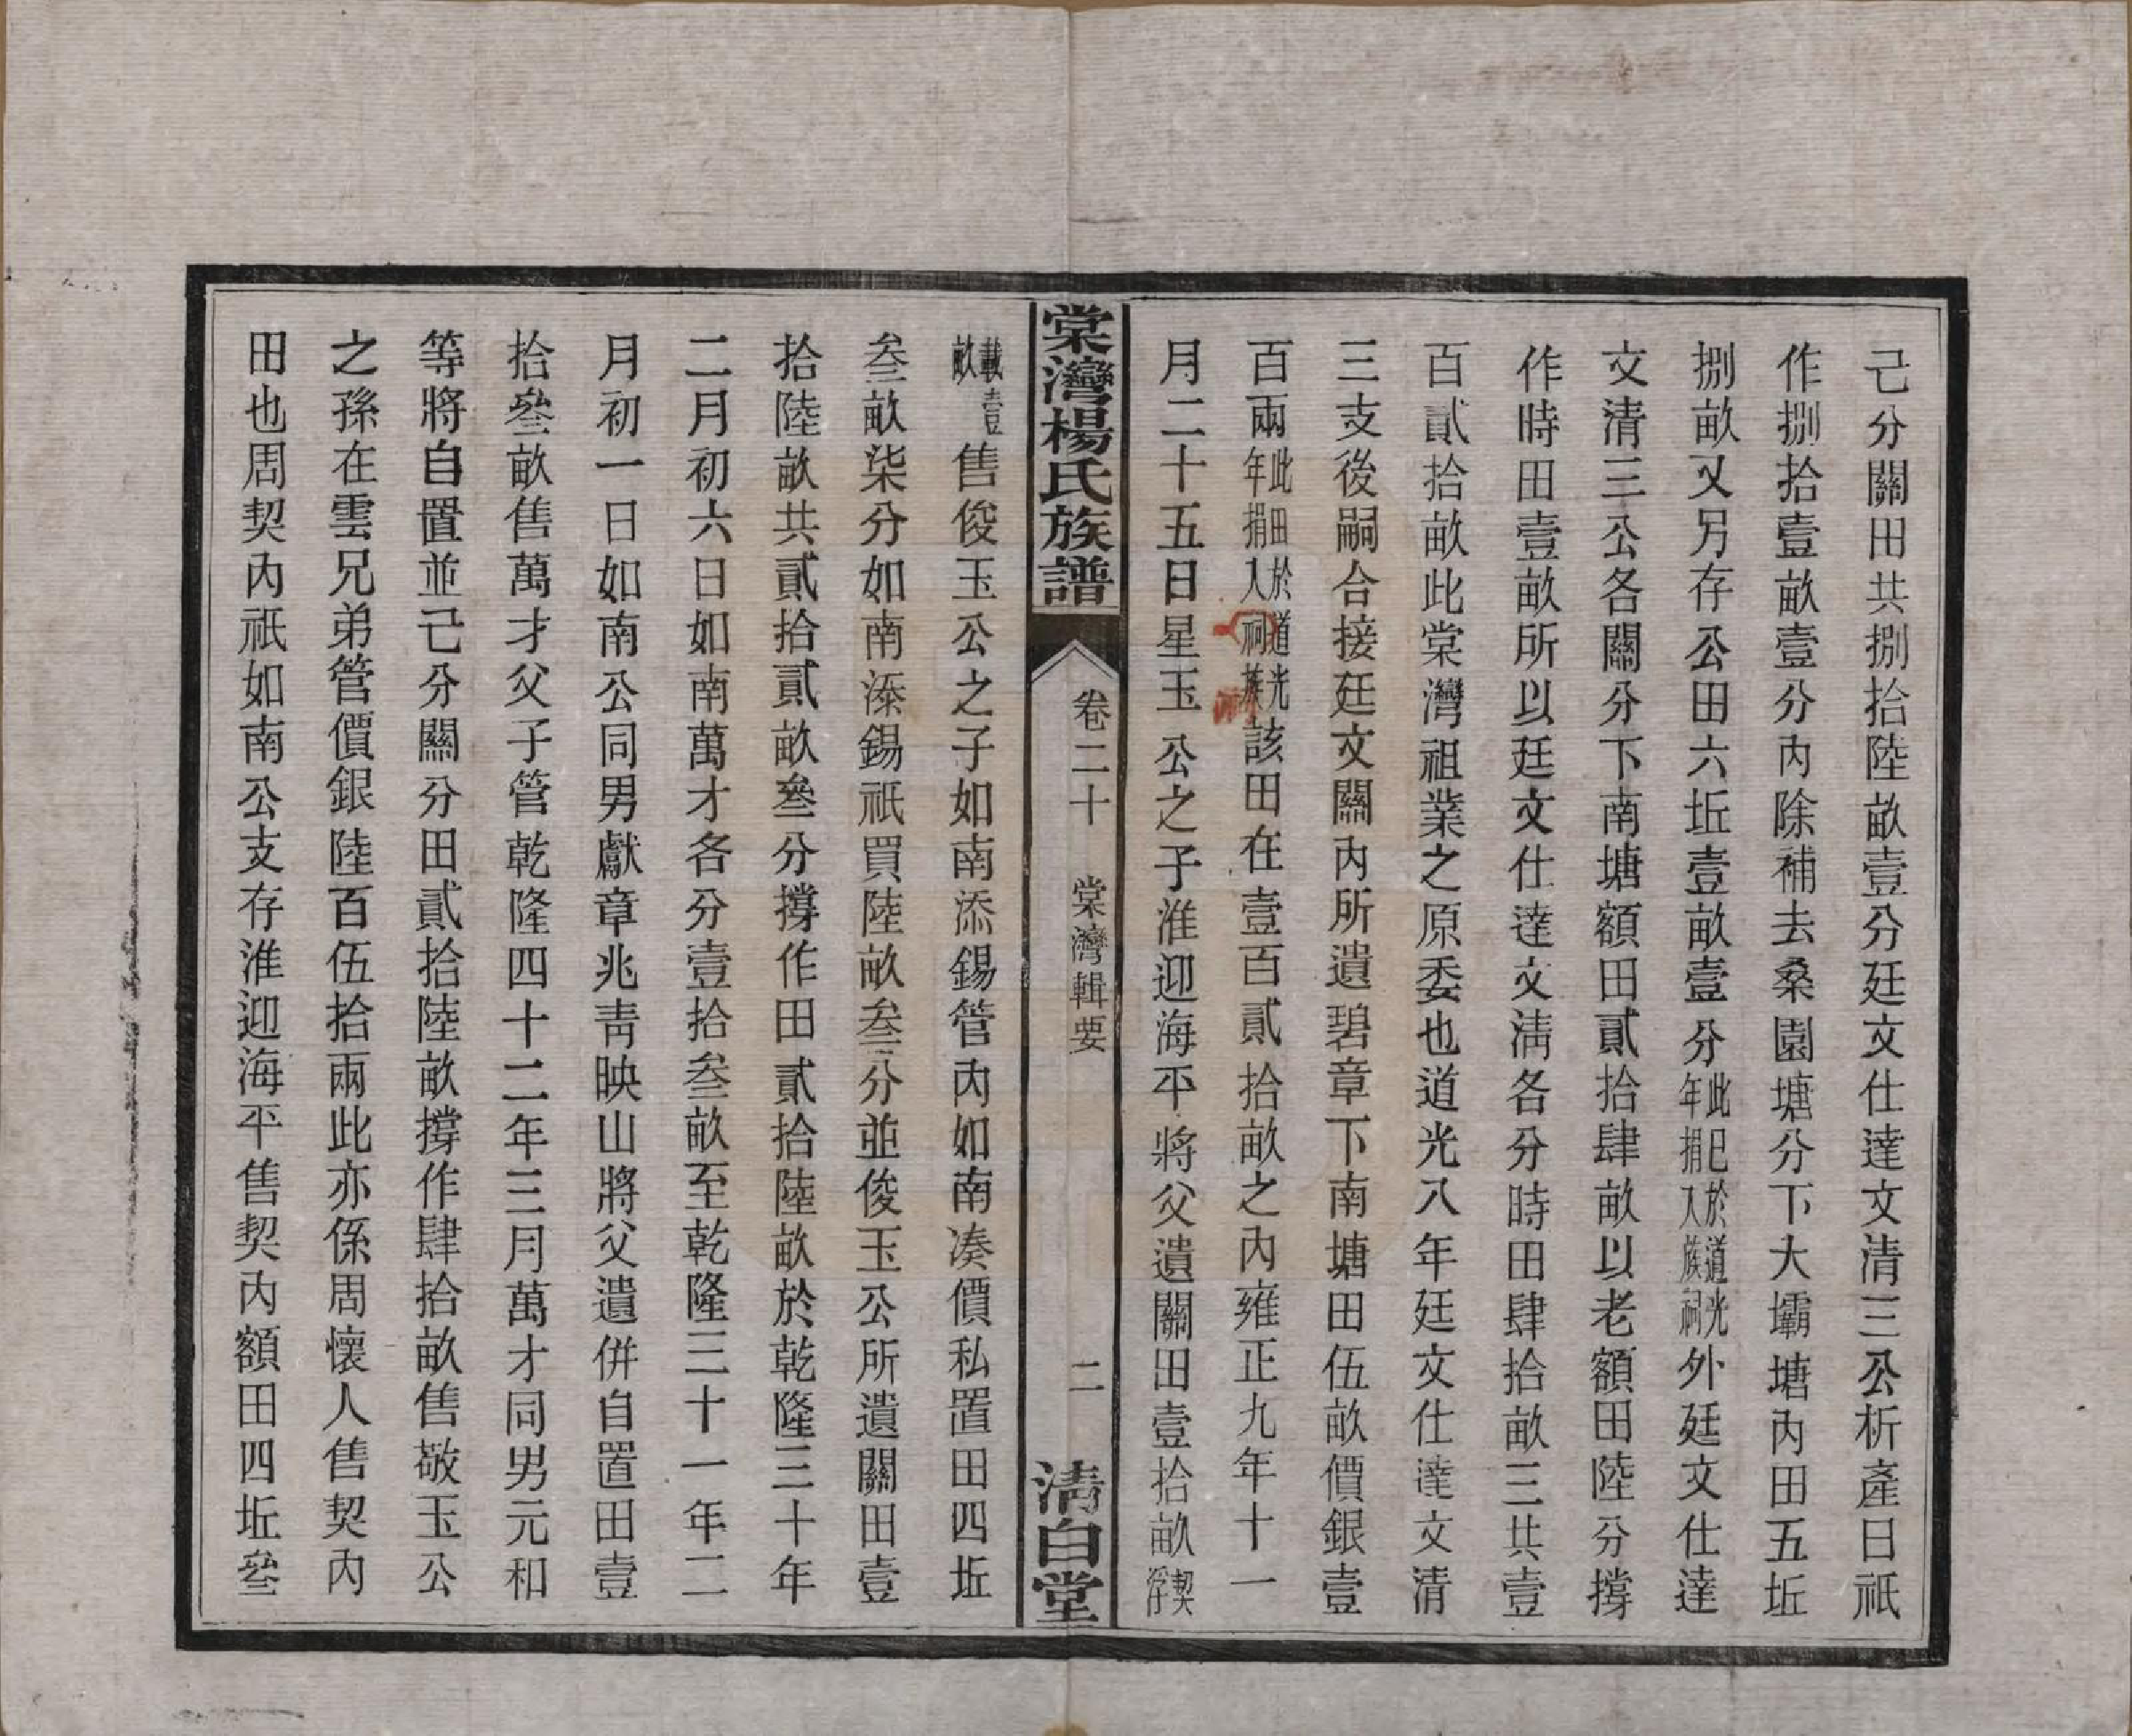 己分關田共捌拾陸畝壹分廷文仕達文清三公析產日祇
作捌拾壹畝壹分內除補去桑園塘分下大壩塘內田五坵
捌畝又另存公田六坵壹畝壹分此已於道光年捐入族祠外廷文仕達
文清三公各關分下南塘額田貳拾肆畝以老額田陸分撐
作時田壹畝所以廷文仕達文清各分時田肆拾畝三共壹
百貳拾畝此棠灣祖業之原委也道光八年廷文仕達文清
三支後嗣合接廷文關內所遺碧章下南塘田伍畝價銀壹
百兩此田於道光年捐入祠族該田在壹百貳拾畝之內雍正九年十一
月二十五日星玉公之子淮迎海平將父遺關田壹拾畝契浮仔
載壹畝售俊玉公之子如南添錫管內如南凑價私置田四坵
叁畝柒分如南添錫祇買陸畝叁分並俊玉公所遺關田壹
拾陸畝共貳拾貳畝叄分撐作田貳拾陸畝於乾隆三十年
二月初六日如南萬才各分壹拾叁畝至乾隆三十一年二
月初一日如南公同男獻章兆青映山將父遺併自置田壹
拾叄畝售萬才父子管乾隆四十二年三月萬才同男元和
等將自置並己分關分田貳拾陸畝撐作肆拾畝售敬玉公
之孫在雲兄弟管價銀陸百伍拾兩此亦係周懷人售契內
田也周契內祇如南公支存淮迎海平售契內額田四坵叄
棠灣楊氏族譜
卷二十
棠灣輯要
二
清白堂